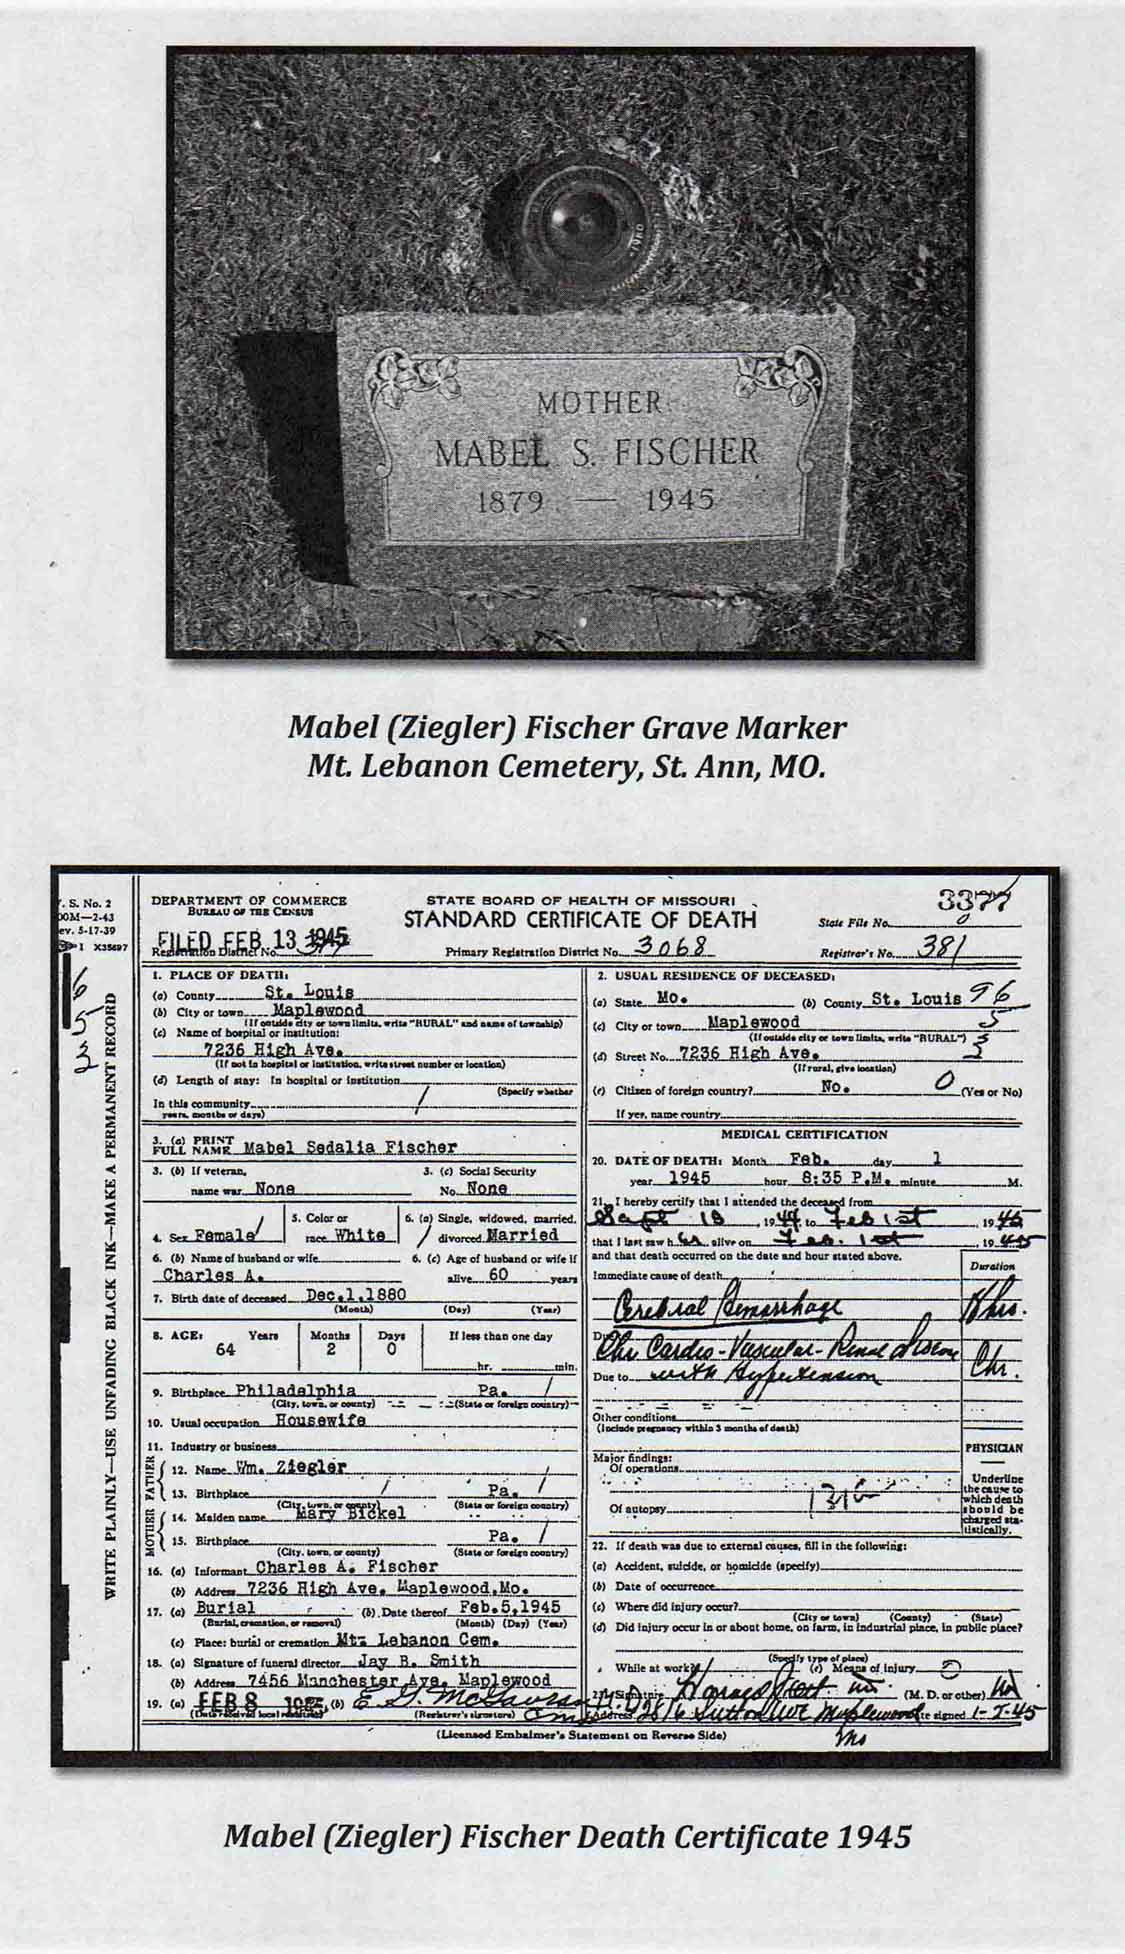 1980
MOTHER
MABEL S. FISCHER
1879 — 1945
Mabel (Ziegler) Fischer Grave Marker
Mt. Lebanon Cemetery, St. Ann, MO.
. S. No. 2
00M—2-43
ev. 5-17-39
1 X35697
6
5
3
WRITE PLAINLY—USE UNFADING BLACK INK—MAKE A PERMANENT RECORD
DEPARTMENT OF COMMERCE
BUREAU OF THE CENSUS
STATE BOARD OF HEALTH OF MISSOURI
STANDARD CERTIFICATE OF DEATH
3377
State File No.
FILED FEB 13 1945
Registration District No.
Primary Registration District No. 3068
Registrar's No. 381
1. PLACE OF DEATH:
(a) County St. Louis
(b) City or town Maplewood
(If outside city or town limits, write "RURAL" and name of township)
(c) Name of hospital or institution:
7236 High Ave.
(If not in hospital or institution, write street number or location)
(d) Length of stay: In hospital or institution
(Specify whether
In this community
years, months or days)
2. USUAL RESIDENCE OF DECEASED:
(a) State Mo. (b) County St. Louis 96
(c) City or town Maplewood 5
(If outside city or town limits, write "RURAL")
(d) Street No. 7236 High Ave.
(If rural, give location)
(e) Citizen of foreign country? No. 0 (Yes or No)
If yes, name country
3. (a) PRINT
FULL NAME Mabel Sedalia Fischer
3. (b) If veteran,
name war None
3. (c) Social Security
No. None
4. Sex Female
5. Color or
race White
6. (a) Single, widowed, married,
divorced Married
6. (b) Name of husband or wife
Charles A.
6. (c) Age of husband or wife if
alive 60 years
7. Birth date of deceased Dec.1.1880
(Month) (Day) (Year)
8. AGE: Years Months Days If less than one day
64 2 0
hr. min.
9. Birthplace Philadelphia Pa.
(City, town, or county) (State or foreign country)
10. Usual occupation Housewife
11. Industry or business
FATHER
12. Name Wm. Ziegler
13. Birthplace Pa.
(City, town, or county) (State or foreign country)
MOTHER
14. Maiden name Mary Bickel
15. Birthplace Pa.
(City, town, or county) (State or foreign country)
16. (a) Informant Charles A. Fischer
(b) Address 7236 High Ave. Maplewood,Mo.
17. (a) Burial (b) Date thereof Feb.5,1945
(Burial, cremation, or removal) (Month) (Day) (Year)
(c) Place: burial or cremation Mt. Lebanon Cem.
18. (a) Signature of funeral director Jay B. Smith
(b) Address 7456 Manchester Ave. Maplewood
19. (a) FEB 8 (b) E. G. McGavran M.D.
(Date received local registrar) (Registrar's signature)
MEDICAL CERTIFICATION
20. DATE OF DEATH: Month Feb. day 1
year 1945 hour 8:35 P.M. minute M.
21. I hereby certify that I attended the deceased from
Sept 18, 1944 to Feb 1st, 1945
that I last saw her alive on Feb. 1st 1945
and that death occurred on the date and hour stated above.
Duration
Immediate cause of death
Cerebral Hemorrhage
hrs.
Due to Chr Cardio-Vascular-Renal disease
Chr.
Due to with Hypertension
Other conditions
(Include pregnancy within 3 months of death)
Major findings:
Of operations
Of autopsy
PHYSICIAN
Underline
the cause to
which death
should be
charged sta-
tistically.
22. If death was due to external causes, fill in the following:
(a) Accident, suicide, or homicide (specify)
(b) Date of occurrence
(c) Where did injury occur?
(City or town) (County) (State)
(d) Did injury occur in or about home, on farm, in industrial place, in public place?
(Specify type of place)
While at work? (e) Means of injury
23. Signature Harold (M. D. or other)
Address 2816 Sutton Ave Maplewood Date signed 1-2-45
Mo
(Licensed Embalmer's Statement on Reverse Side)
Mabel (Ziegler) Fischer Death Certificate 1945